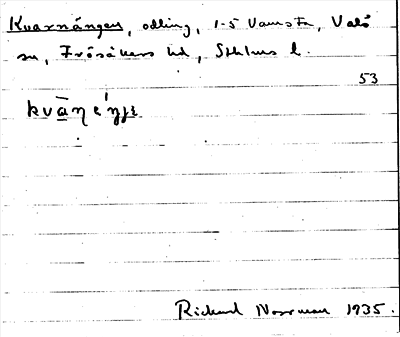 Kvarnängen, odling, 1-5 Vamsta, Valö
sn, Frösåkers hd, Sthlms l.
53
Richard Norrman 1935.